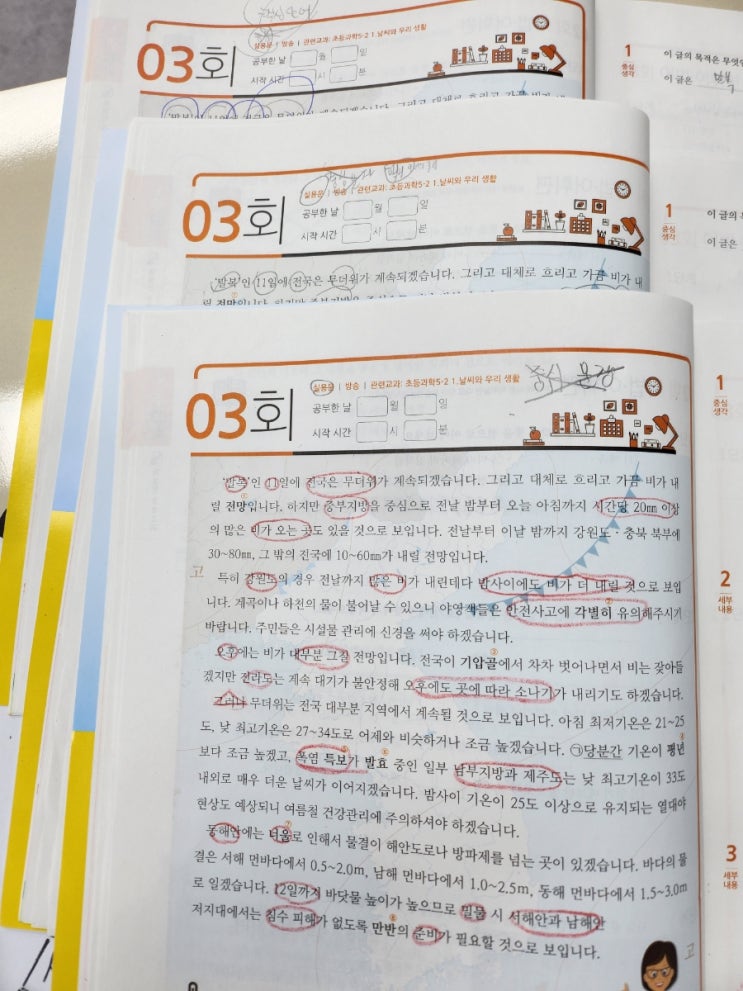 03회
실용문 | 방송 | 관련교과: 초등과학5-2 1.날씨와 우리 생활
공부한 날 월 일
시작 시간 시 분
1
중심
생각
이 글의 목적은 무엇
이 글은
03회
실용문 | 방송 | 관련교과: 초등과학5-2 1.날씨와 우리 생활
공부한 날 월 일
시작 시간 시 분
'말복'인 11일에 전국은 무더위가 계속되겠습니다. 그리고 대체로 흐리고 가끔 비가 내
1
중심
생각
이 글의
이 글은
03회
실용문 | 방송 | 관련교과: 초등과학5-2 1.날씨와 우리 생활
중심 문장
공부한 날 월 일
시작 시간 시 분
'말복'인 11일에 전국은 무더위가 계속되겠습니다. 그리고 대체로 흐리고 가끔 비가 내
릴 전망입니다. 하지만 중부지방을 중심으로 전날 밤부터 오늘 아침까지 시간당 20㎜ 이상
의 많은 비가 오는 곳도 있을 것으로 보입니다. 전날부터 이날 밤까지 강원도·충북 북부에
30~80㎜, 그 밖의 전국에 10~60㎜가 내릴 전망입니다.
특히 강원도의 경우 전날까지 많은 비가 내린데다 밤사이에도 비가 더 내릴 것으로 보입
니다. 계곡이나 하천의 물이 불어날 수 있으니 야영객들은 안전사고에 각별히 유의해주시기
바랍니다. 주민들은 시설물 관리에 신경을 써야 하겠습니다.
오후에는 비가 대부분 그칠 전망입니다. 전국이 기압골에서 차차 벗어나면서 비는 잦아들
겠지만 전라도는 계속 대기가 불안정해 오후에도 곳에 따라 소나기가 내리기도 하겠습니다.
그러나 무더위는 전국 대부분 지역에서 계속될 것으로 보입니다. 아침 최저기온은 21~25
도, 낮 최고기온은 27~34도로 어제와 비슷하거나 조금 높겠습니다. ㉠당분간 기온이 평년
보다 조금 높겠고, 폭염 특보가 발효 중인 일부 남부지방과 제주도는 낮 최고기온이 33도
내외로 매우 더운 날씨가 이어지겠습니다. 밤사이 기온이 25도 이상으로 유지되는 열대야
현상도 예상되니 여름철 건강관리에 주의하셔야 하겠습니다.
동해안에는 너울로 인해서 물결이 해안도로나 방파제를 넘는 곳이 있겠습니다. 바다의 물
결은 서해 먼바다에서 0.5~2.0m, 남해 먼바다에서 1.0~2.5m, 동해 먼바다에서 1.5~3.0m
로 일겠습니다. 12일까지 바닷물 높이가 높으므로 밀물 시 서해안과 남해안
저지대에서는 침수 피해가 없도록 만반의 준비가 필요할 것으로 보입니다.
1
중심
생각
2
세부
내용
3
세부
내용